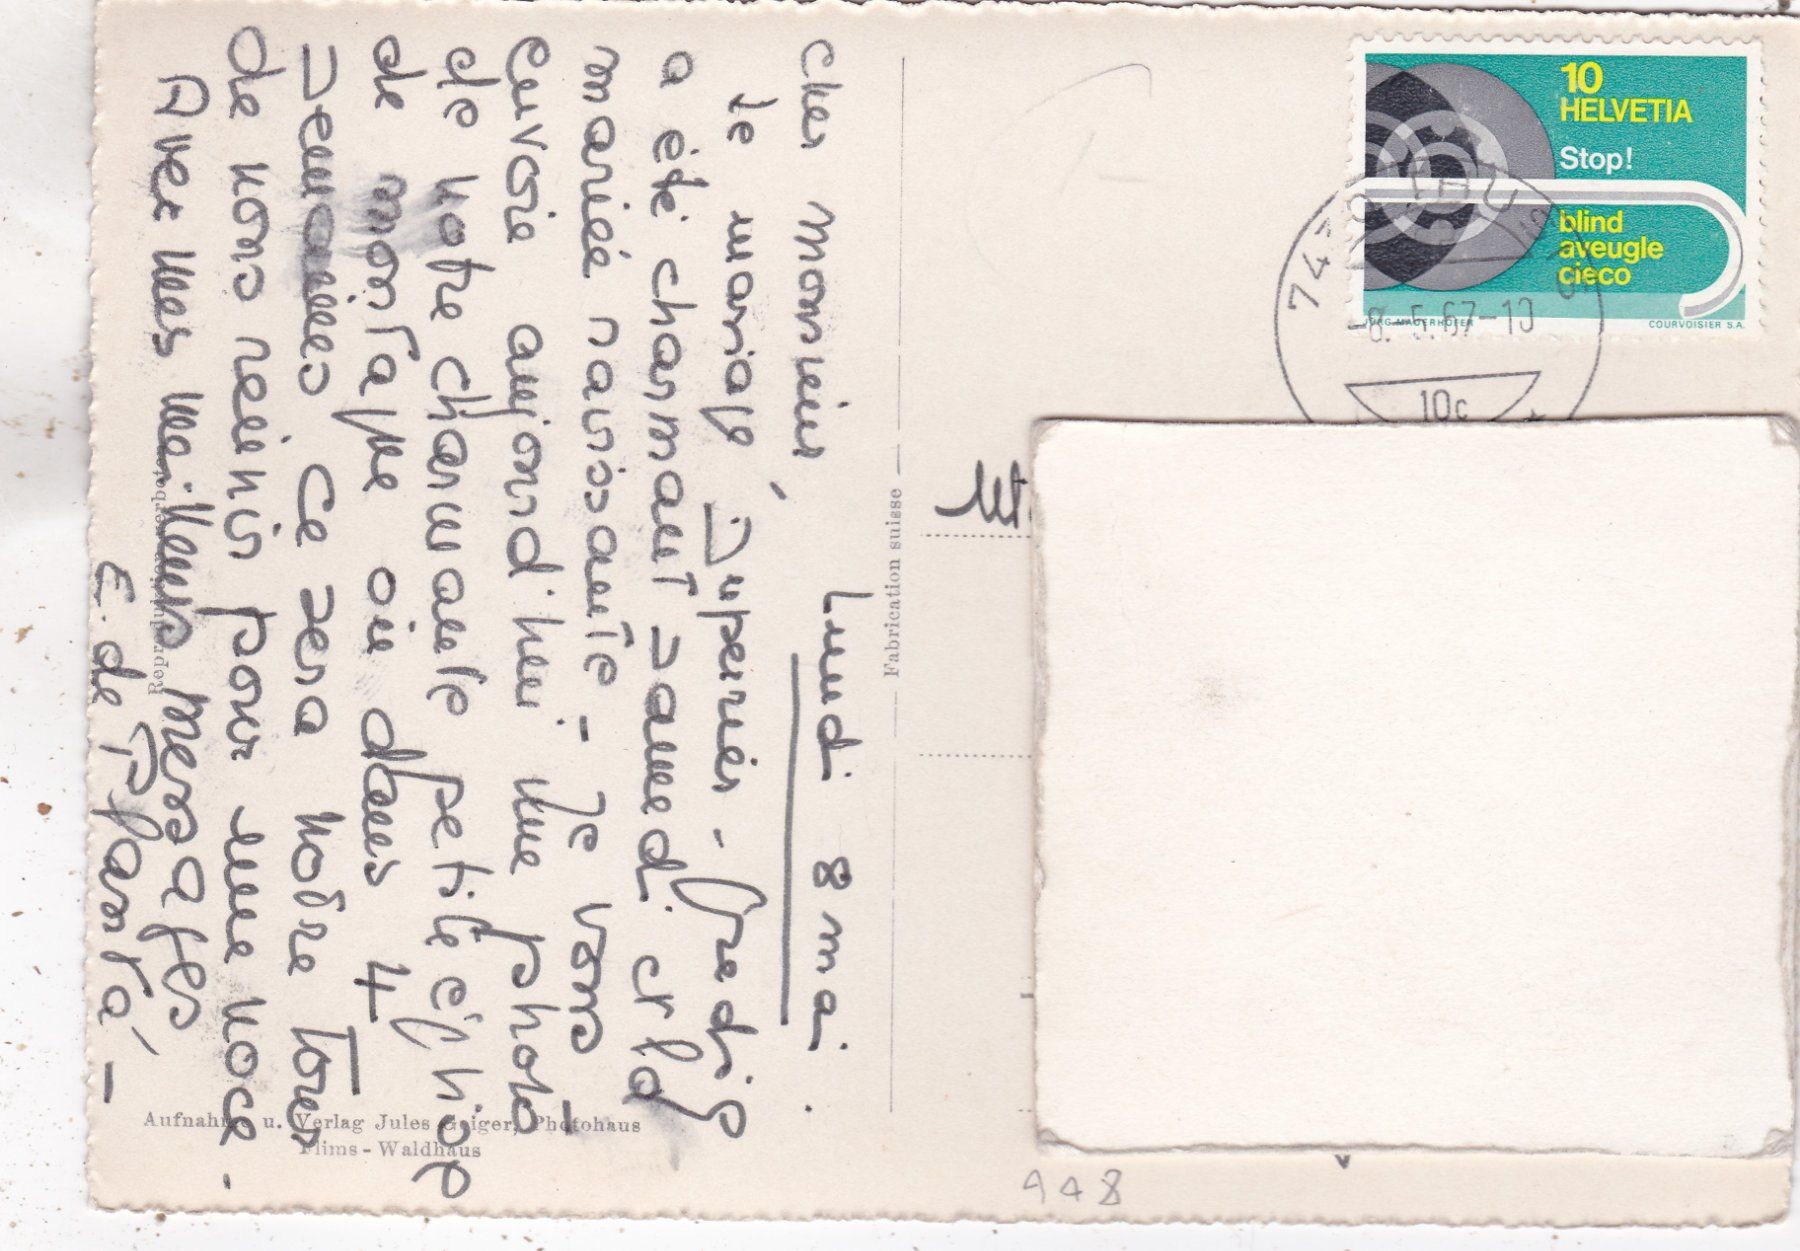 Lundi 8 mai.
Cher Monsieur,
le mariage Dupérier - Gradis
a été charmant samedi et la
mariée ravissante - Je vous
envoie aujourd'hui une photo
de notre charmante petite église
de montagne où dans 4
semaines ce sera notre tour
de nous réunir pour une noce.
Avec mes meilleurs messages
E. de
Fabrication suisse
Aufnahme u. Verlag Jules Geiger, Photohaus
Flims - Waldhaus
10
HELVETIA
Stop!
blind
aveugle
cieco
COURVOISIER S.A.
-8.-5.67-10
10c
948